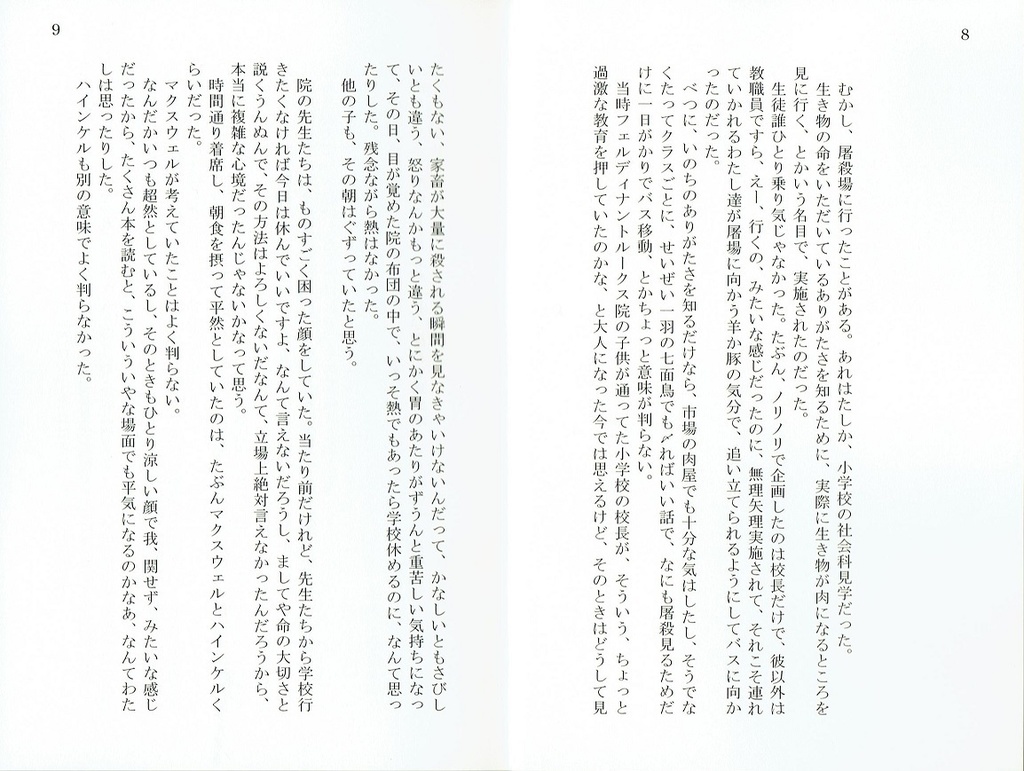 8
むかし、屠殺場に行ったことがある。あれはたしか、小学校の社会科見学だった。
生き物の命をいただいているありがたさを知るために、実際に生き物が肉になるところを
見に行く、とかいう名目で、実施されたのだった。
生徒誰ひとり乗り気じゃなかった。たぶん、ノリノリで企画したのは校長だけで、彼以外は
教職員ですら、えー、行くの、みたいな感じだったのに、無理矢理実施されて、それこそ連れ
ていかれるわたし達が屠場に向かう羊か豚の気分で、追い立てられるようにしてバスに向か
ったのだった。
べつに、いのちのありがたさを知るだけなら、市場の肉屋でも十分な気はしたし、そうでな
くたってクラスごとに、せいぜい一羽の七面鳥でも〆ればいい話で、なにも屠殺見るためだ
けに一日がかりでバス移動、とかちょっと意味が判らない。
当時フェルディナントルークス院の子供が通ってた小学校の校長が、そういう、ちょっと
過激な教育を押していたのかな、と大人になった今では思えるけど、そのときはどうして見
9
たくもない、家畜が大量に殺される瞬間を見なきゃいけないんだって、かなしいともさびし
いとも違う、怒りなんかもっと違う、とにかく胃のあたりがずうんと重苦しい気持ちになっ
て、その日、目が覚めた院の布団の中で、いっそ熱でもあったら学校休めるのに、なんて思っ
たりした。残念ながら熱はなかった。
他の子も、その朝はぐずっていたと思う。
院の先生たちは、ものすごく困った顔をしていた。当たり前だけれど、先生たちから学校行
きたくなければ今日は休んでいいですよ、なんて言えないだろうし、ましてや命の大切さと
説くうんぬんで、その方法はよろしくないだなんて、立場上絶対言えなかったんだろうから、
本当に複雑な心境だったんじゃないかなって思う。
時間通り着席し、朝食を摂って平然としていたのは、たぶんマクスウェルとハインケルく
らいだった。
マクスウェルが考えていたことはよく判らない。
なんだかいつも超然としているし、そのときもひとり涼しい顔で我、関せず、みたいな感じ
だったから、たくさん本を読むと、こういういやな場面でも平気になるのかなあ、なんてわた
しは思ったりした。
ハインケルも別の意味でよく判らなかった。